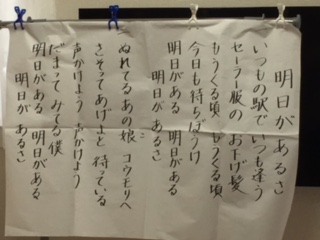 明日がある さ
いつもの駅で いつも逢う
セーラー服の お下げ髪
もうくる頃 もうくる頃
今日も待ちぼうけ
明日がある 明日がある
明日が あるさ
ぬれてるあの娘 コウモリへ
こ
さそってあげよと 待っている
声かけよう 声かけよう
だまって みてる僕
明日がある 明日がある
明日が あるさ